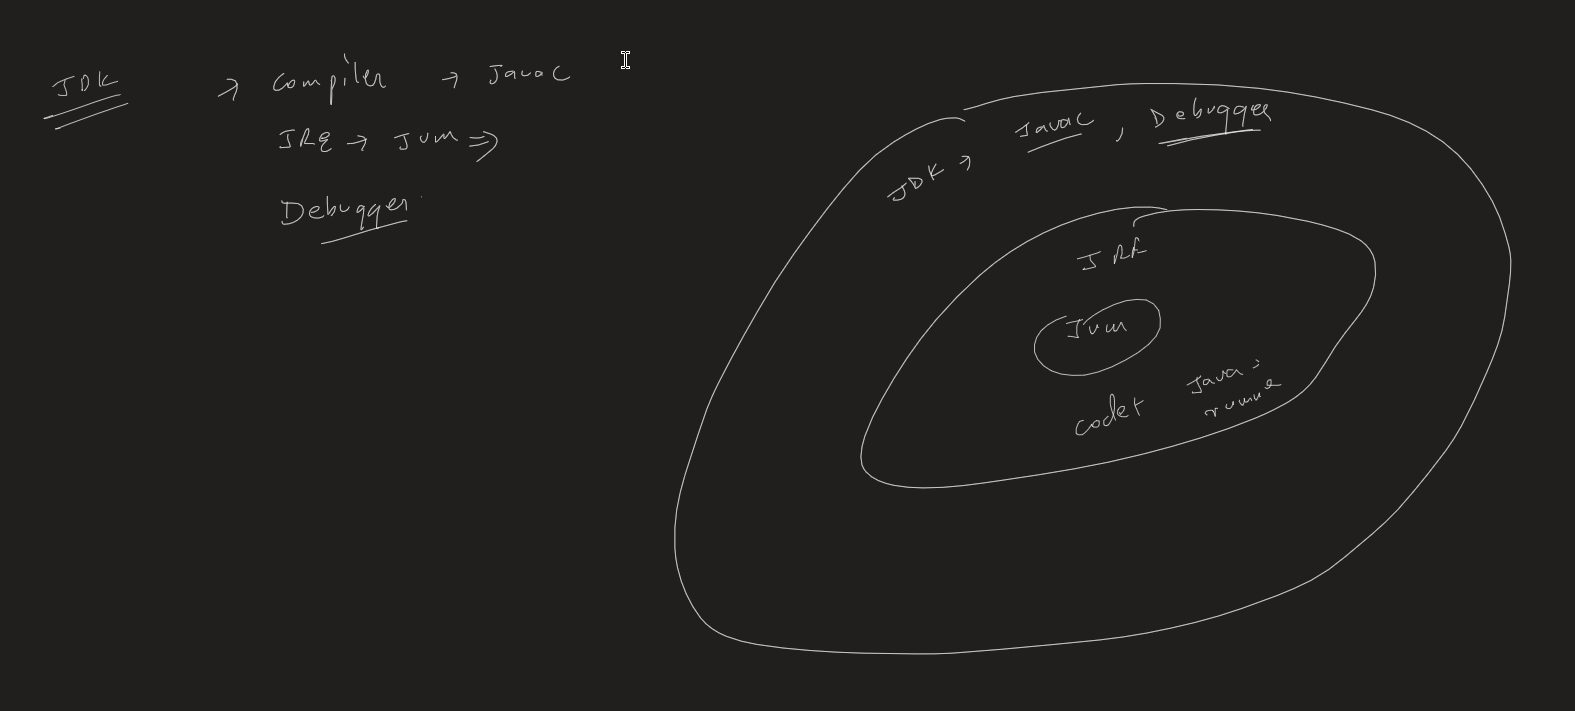 JDK → Compiler → Javac
JRE → Jvm ⇒
Debugger
JDK → Javac, Debugger
JRE
Jvm
Java